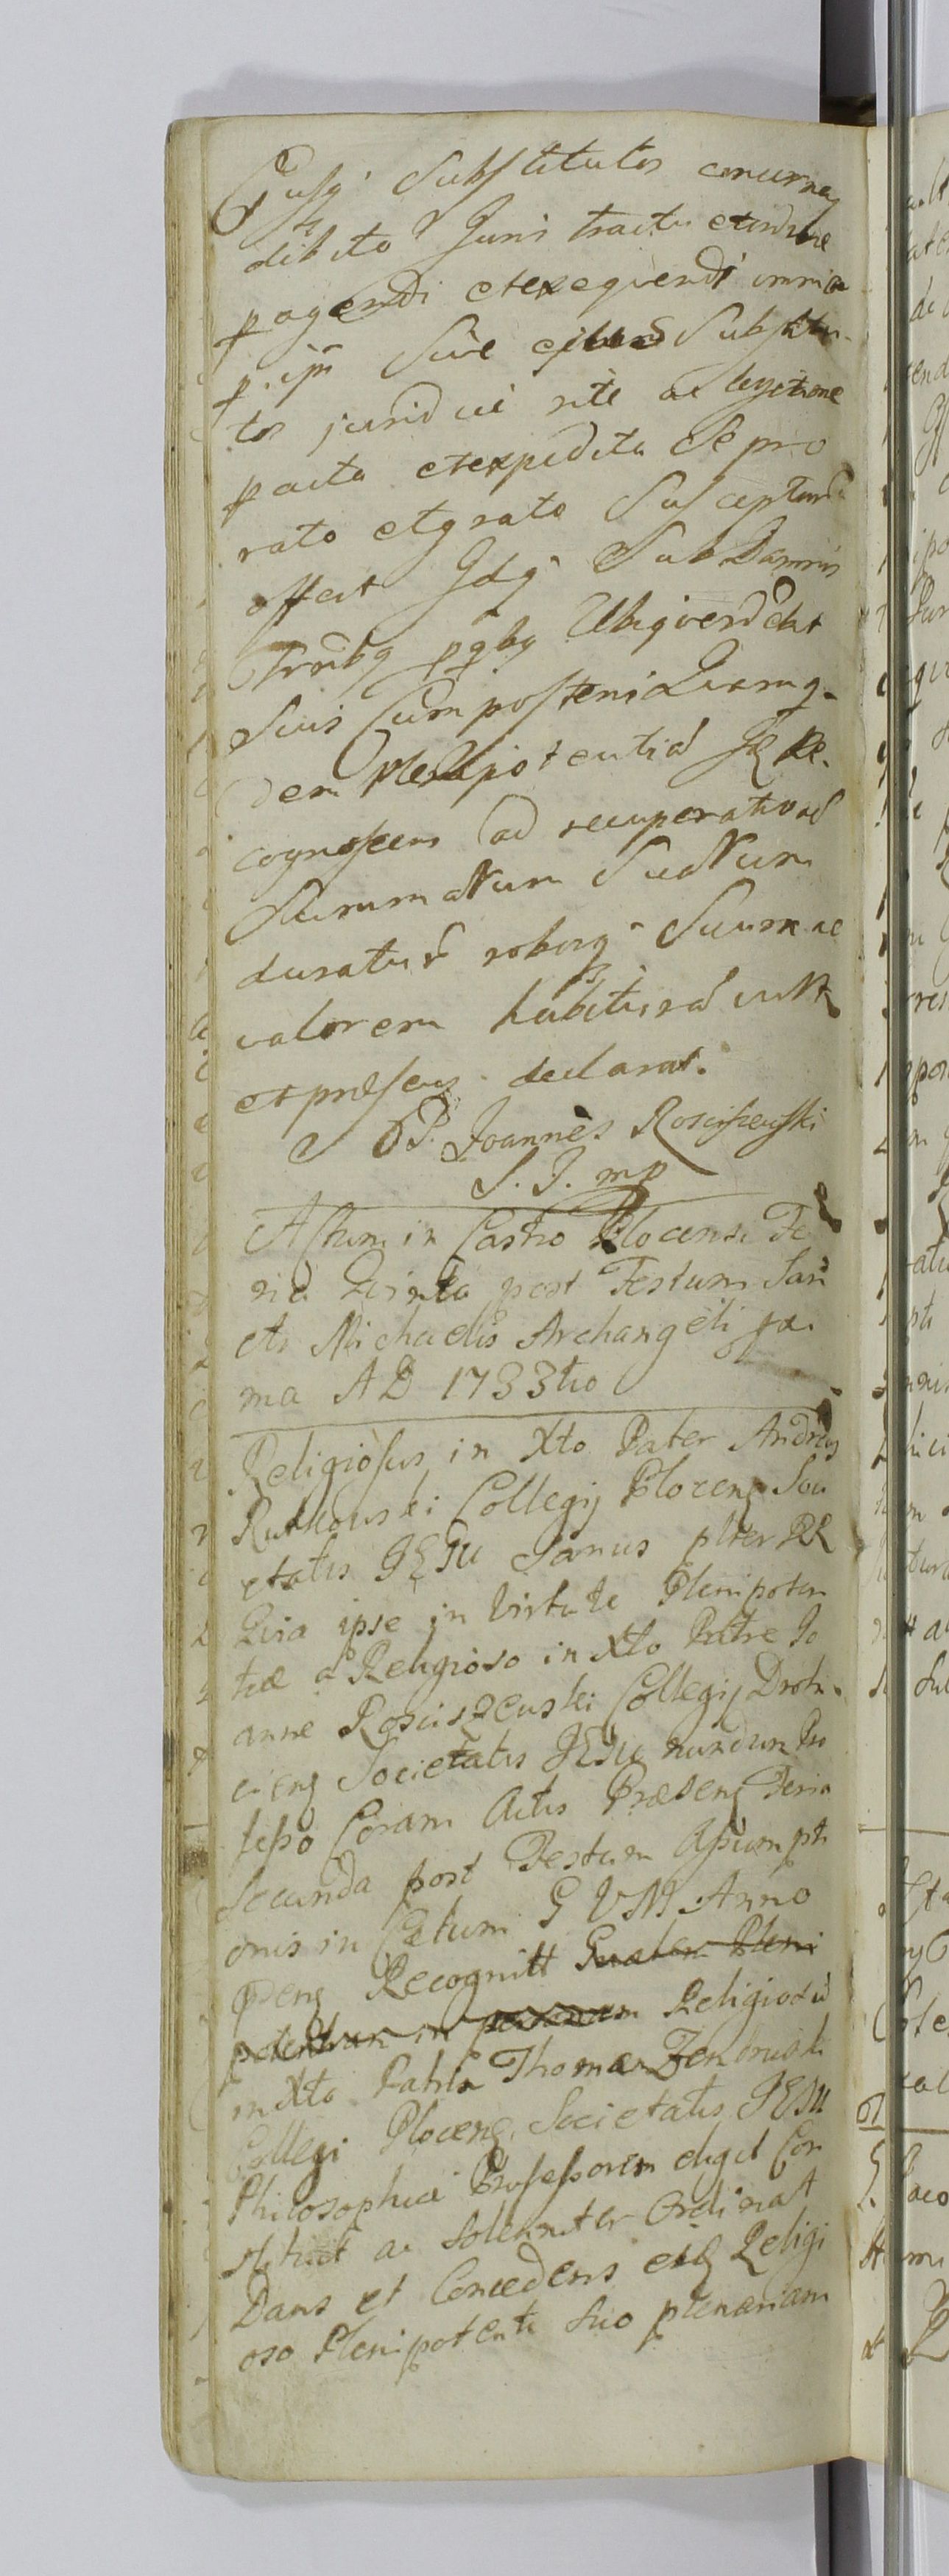 Ejusq̃ Substitutos concernen
debito Juris tractu et ordine
pagendi et exequendi omnia
p. ipm̃ Sive ejus Substitu-
tos juridice rite ac legitime
pacta et expedita Se pro
rato et grato Suscepturũ
offert Idq̃ Sub Damnis
Trnibq pqbq Ubiqvendũ
Suis Cum posteris Quamq-
dem Plenipotentiã Is Re-
cognoscens ad recuperationẽ
Summarum Suarum
duraturã roburq̃ Suum ac
valorem habiturã vult
et præsens declarat.
P. Joannes Rosciszewski
S. J. mp
Actum in Castro Plocensi Fe
ria Quinta post Festum San
cti Michaelis Archangeli pxi
ma A D 1733tio
Religiosus in Xto Pater Andreas
Rutkowski Collegij Plocens Soci
etatis JESU Sanus plter RR
Quia ipse in Virtute Plenipoten
tiæ a Religioso in Xto Patre Jo
anne Rosciszewski Collegij Drohi
ciens Societatis JESU nundum Pro
fesso Coram Actis Præsens Feria
Secunda post Festum Assumpti
onis in Cælum G V M Anno
Præns Recognitt Gnalem Pleni
potentiam in personam Religiosũ
in Xto Patrem Thomam Zembruski
Collegi Plocens Societatis JESU
Philosophiæ Professorem elegit Con
stituit ac Solenniter Ordinat
Dans et Concedens eidẽ Religi
oso Plenipotenti Suo plenariam